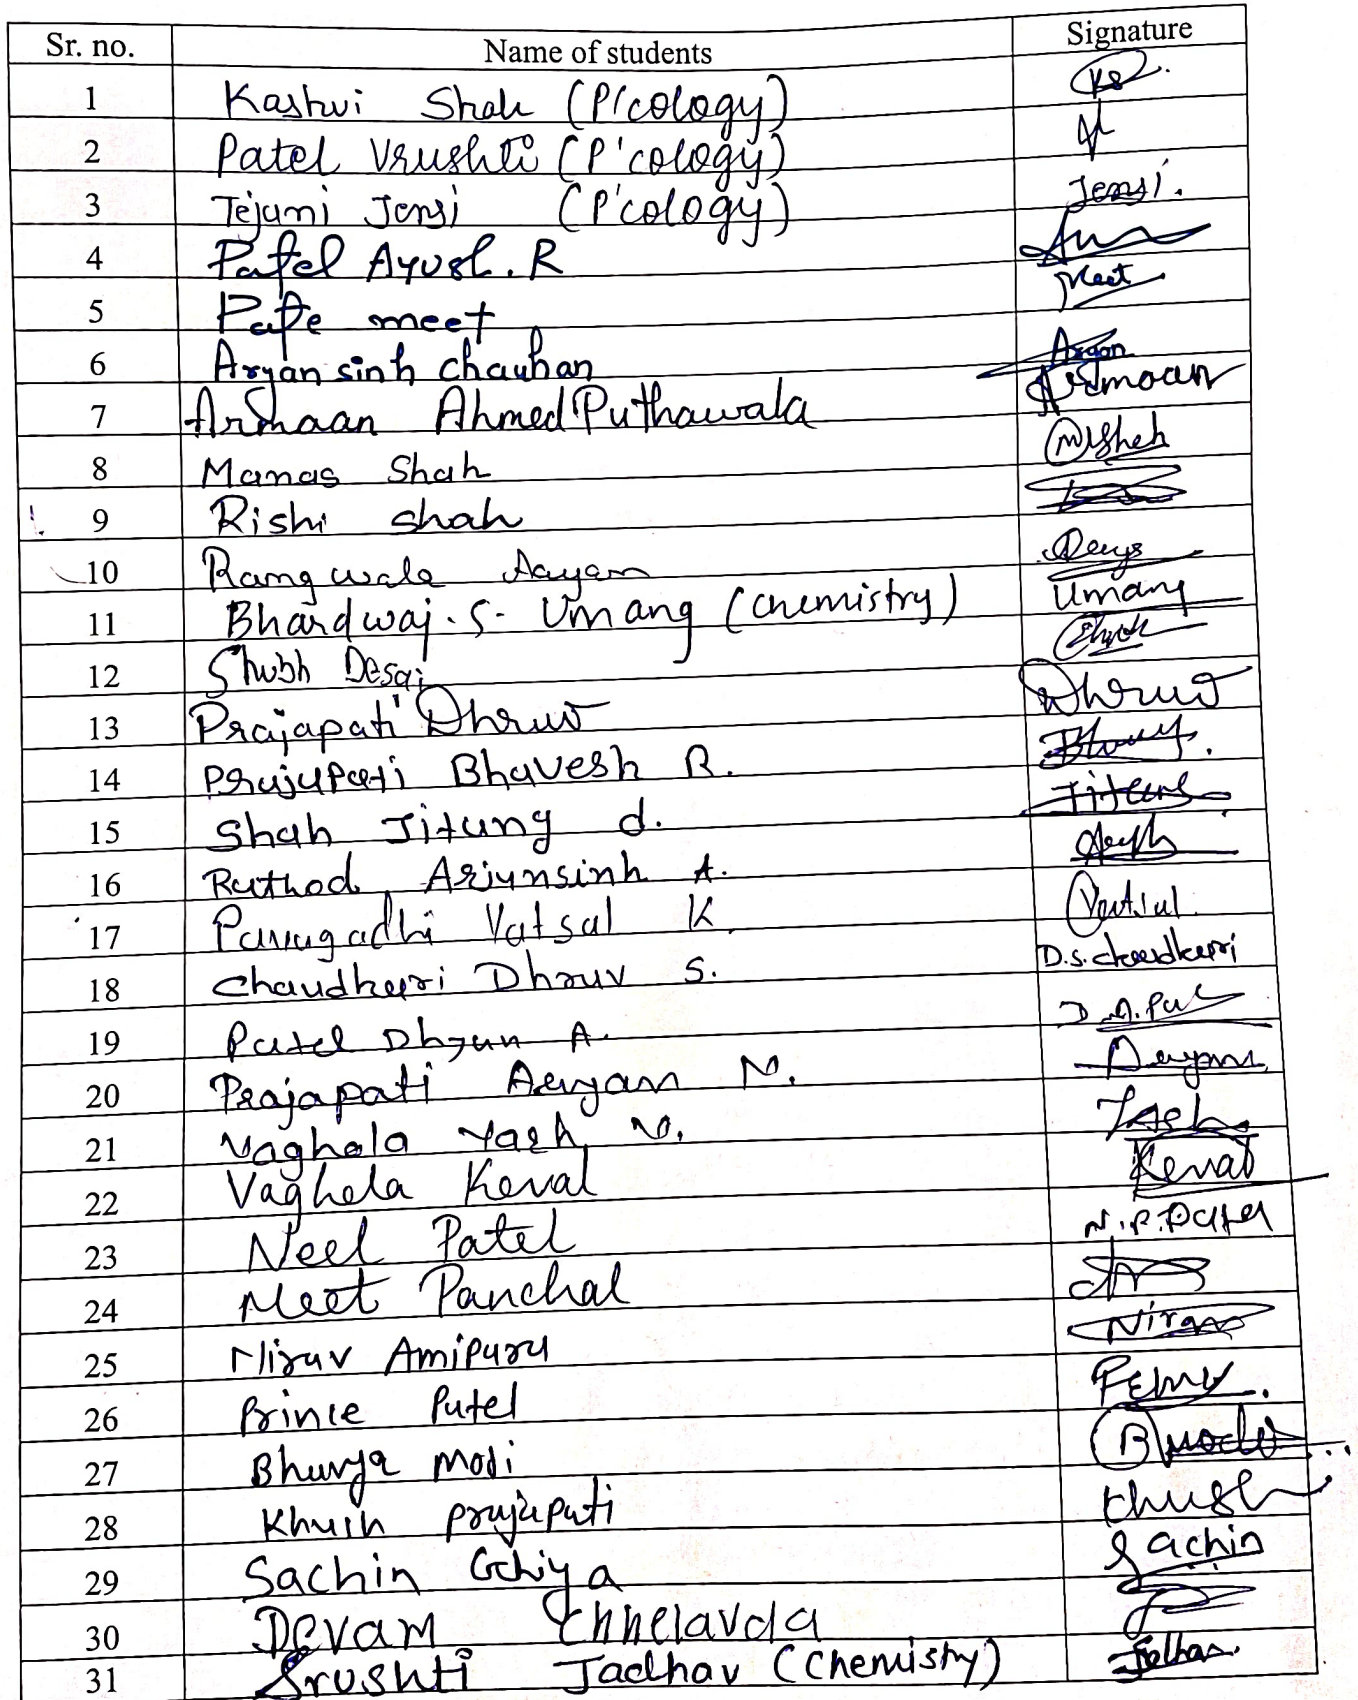 Sr. no. Name of students Signature
1 Kashvi Shah (P'cology)
2 Patel Vrushti (P'cology)
3 Tejani Jensi (P'cology) Jensi.
4 Patel Ayush. R
5 Pate meet Meet
6 Aryansinh chauhan Aryan
7 Armaan Ahmed Puthawala Armaan
8 Manas Shah
9 Rishi shah
10 Rangwala Aayam
11 Bhardwaj. S. Umang (Chemistry) Umang
12 Shubh Desai
13 Prajapati Dhruv Dhruv
14 Prajapati Bhavesh R.
15 Shah Jitang d.
16 Rathod Arjunsinh A.
17 Pavagadhi Vatsal K Vatsal
18 Chaudhari Dhruv S. D.S. chaudhari
19 Patel Dhyan A.
20 Prajapati Aayam N.
21 Vaghela Yash N. Yash
22 Vaghela Keval Keval
23 Neel Patel N.P. Patel
24 Meet Panchal
25 Nirav Amipara
26 Prince Patel
27 Bhavya modi B modi
28 Khush prajapati Khush
29 Sachin Gohiya Sachin
30 Devam Chhelavda
31 Srushti Jadhav (Chemistry)